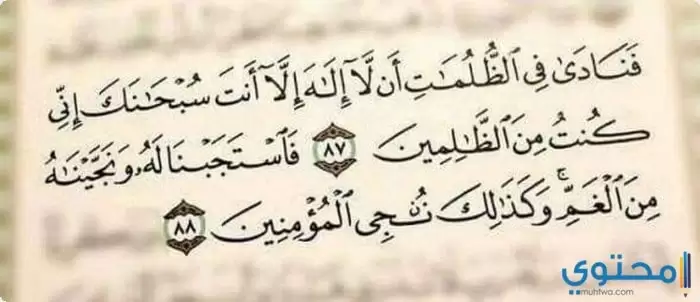 فَنَادَىٰ فِي ٱلظُّلُمَٰتِ أَن لَّآ إِلَٰهَ إِلَّآ أَنتَ سُبْحَٰنَكَ إِنِّي
كُنتُ مِنَ ٱلظَّٰلِمِينَ ٨٧ فَٱسْتَجَبْنَا لَهُۥ وَنَجَّيْنَٰهُ
مِنَ ٱلْغَمِّ ۚ وَكَذَٰلِكَ نُـۨجِي ٱلْمُؤْمِنِينَ ٨٨
محتوى
muhtwa.com